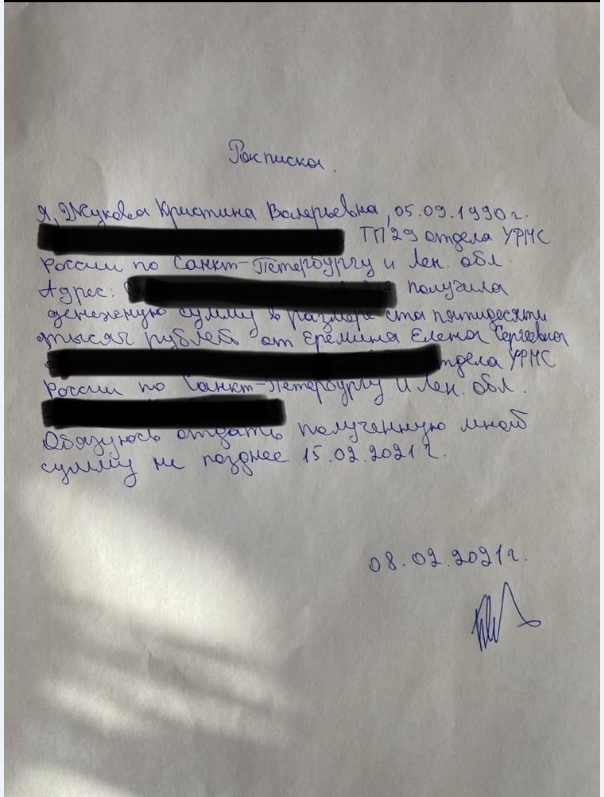 Расписка.
Я, Жукова Кристина Валерьевна, 05.09.1990 г.
ТП29 отдела УФМС
России по Санкт-Петербургу и Лен. обл
Адрес: получила
денежную сумму в размере ста пятидесяти
тысяч рублей от Еремина Елена Сергеевна
отдела УФМС
России по Санкт-Петербургу и Лен. обл.
Обязуюсь отдать полученную мной
сумму не позднее 15.02.2021 г.
08.02.2021г.